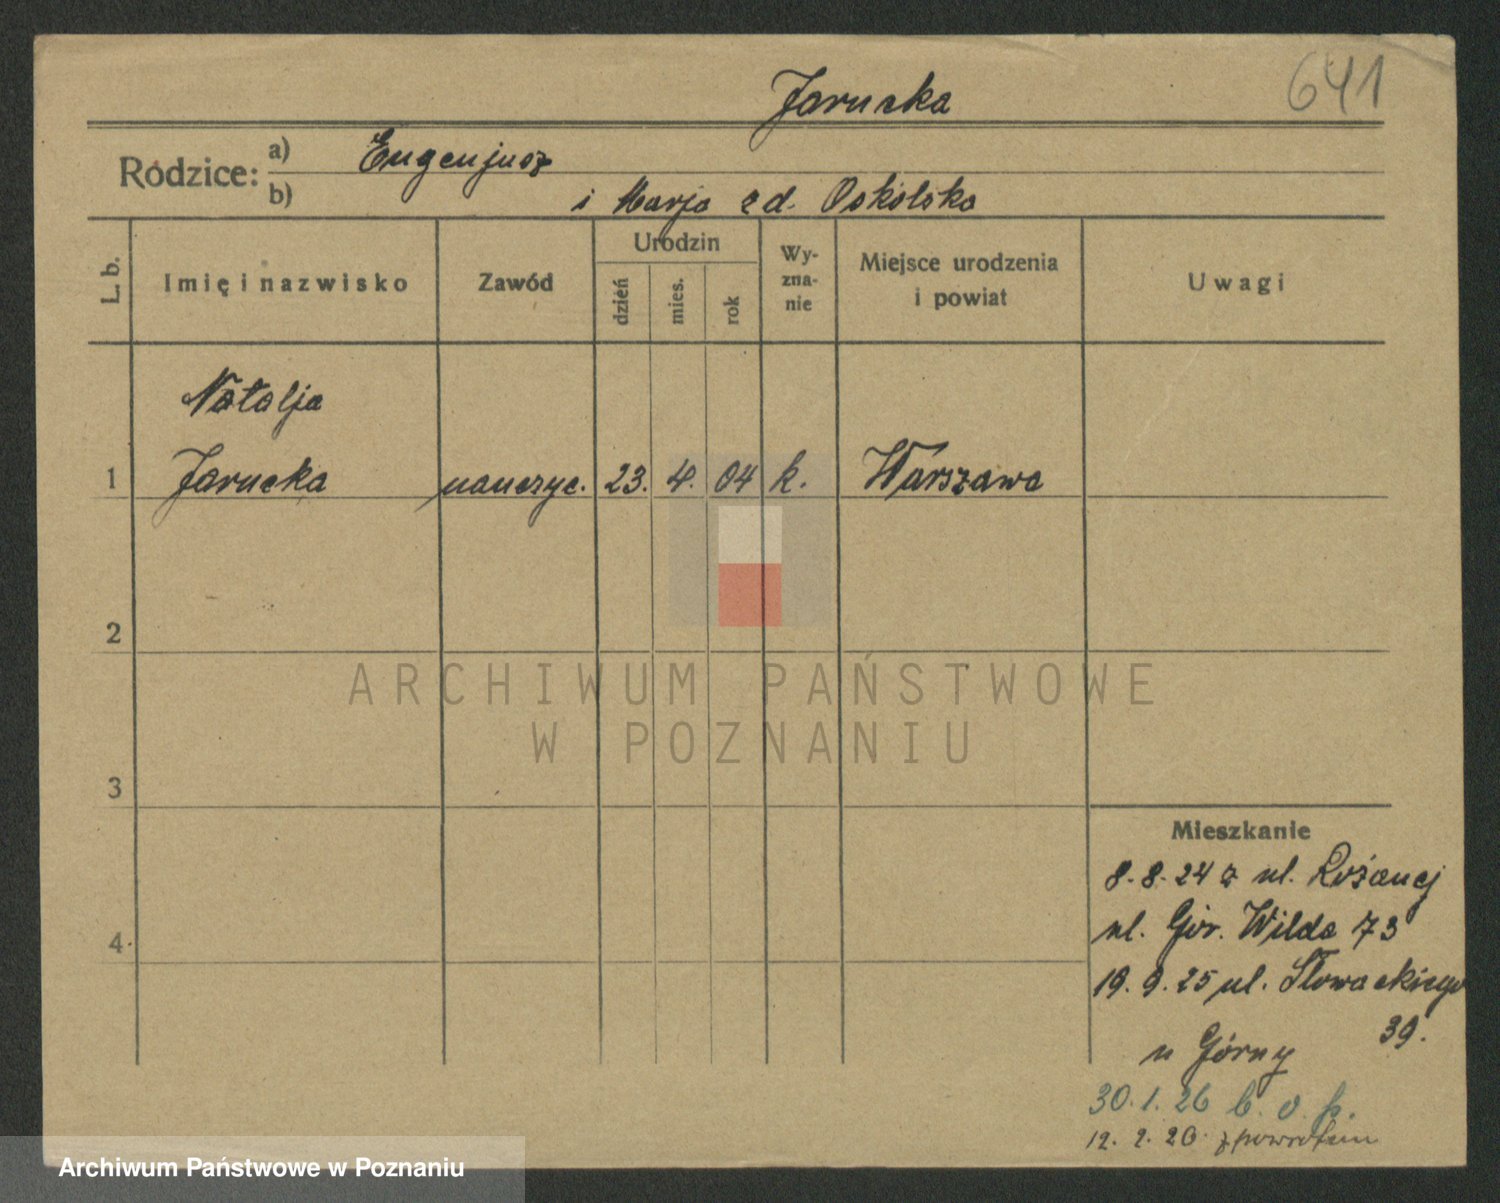 641
Jarucka
Rodzice:
a) Eugenjusz
b) i Marja z d. Oskólska
L. b.
Imię i nazwisko
Zawód
Urodzin
dzień
mies.
rok
Wy-
zna-
nie
Miejsce urodzenia
i powiat
Uwagi
Natalja
1 Jarucka nauczyc. 23. 4. 04 k. Warszawa
2
3
4
Mieszkanie
8.8.24 z ul. Różanej
ul. Gór. Wilda 73
19.9.25 ul. Słowackiego
39.
u Górny
30.1.26 b. o. p.
12.2.26 z powrotem
ARCHIWUM PAŃSTWOWE
W POZNANIU
Archiwum Państwowe w Poznaniu